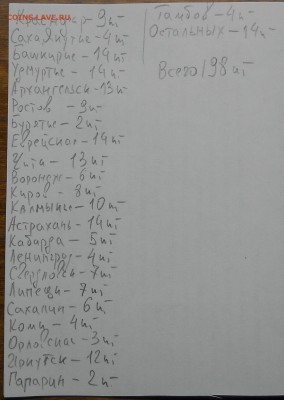 COINS-LAVE.RU
Краснояр 9шт
Саха Якутье-4шт
Башкирье-14шт
Урмуртье-14шт
Архангельск-13шт
Ростов - 9шт
Бурятье-2шт
Еврейское-14шт
Чита - 13шт
Воронеж-6шт
Киров - 8шт
Калмыкье-10шт
Астрахань-14шт
Кабарда-5шт
Ленинград-4шт
Свердловск-7шт
Липецк-7шт
Сахалин-6шт
Коми-4шт
Орловская-3шт
Иркутск-12шт
Гагарин-2шт
Тамбов-4шт
Остальных-14шт
Всего 198шт